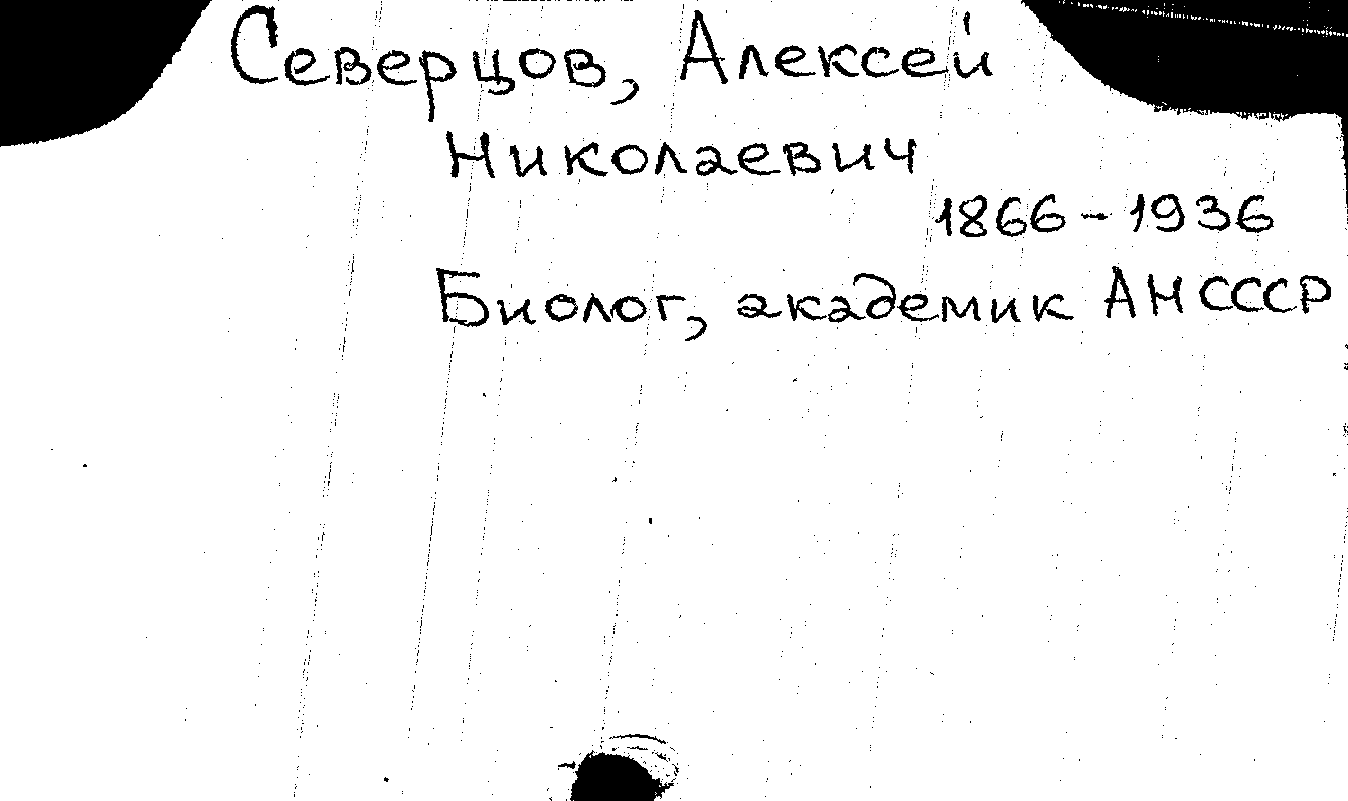 Северцов, Алексей
Николаевич
1866-1936
Биолог, академик АНСССР